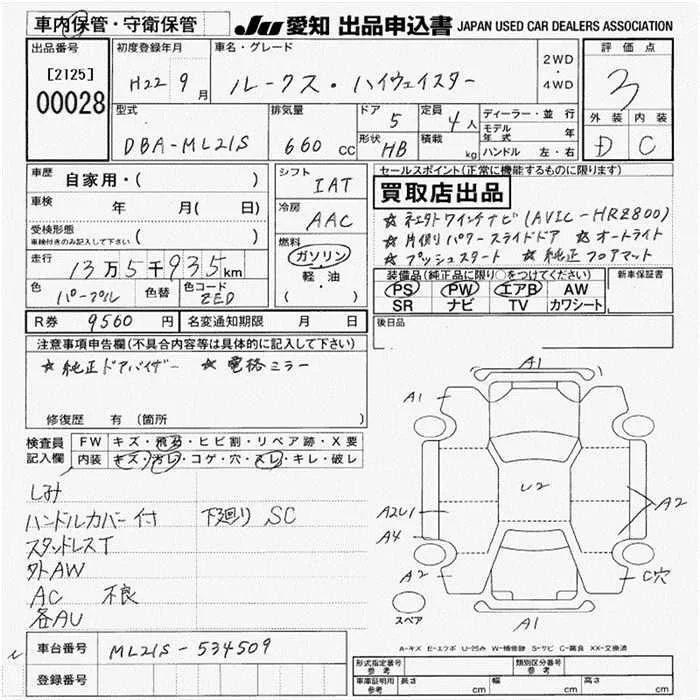 車内保管・守衛保管
JU 愛知 出品申込書 JAPAN USED CAR DEALERS ASSOCIATION
出品番号
[2125]
00028
初度登録年月
H22 9月
車名・グレード
ルークス・ハイウェイスター
2WD
・
4WD
評価点
3
外装 内装
D C
型式
DBA-ML21S
排気量
660 cc
ドア 5
形状 HB
定員 4人
積載 kg
ディーラー・並行
モデル年式 年
ハンドル 左・右
車歴 自家用・( )
車検 年 月( 日)
受検形態
車検付きのみ記入して下さい ( )
走行 13万5千935km
色 パープル
色替
色コード ZED
シフト IAT
冷房 AAC
燃料
ガソリン
軽・油
( )
セールスポイント(正常に機能するものに限ります)
買取店出品
☆ ネエタトワインチナビ(AVIC-HRZ800)
☆ 片側リパワースライドドア ☆ オートライト
☆ プッシュスタート ☆ 純正フロアマット
装備品(純正品に限り○をつけてください)
PS PW エアB AW
SR ナビ TV カワシート
新車保証書
R券 9560 円
名変通知期限 月 日
後日品
注意事項申告欄(不具合内容等は具体的に記入して下さい)
☆ 純正ドアバイザー ☆ 電格ミラー
修復歴 有 (箇所 )
検査員記入欄
FW キズ・飛石・ヒビ割・リペア跡・X要
内装 キズ・汚レ・コゲ・穴・スレ・キレ・破レ
しみ
ハンドルカバー付 下廻り SC
スタンドレスT
外AW
AC 不良
各AU
A1
A1
U2
A2U1
A4
A2
A2
C穴
A1
スペア
A-キズ E-エクボ U-凹み W-補修跡 S-サビ C-腐食 XX-交換済
車台番号 ML21S-534509
登録番号
形式指定番号 参考
類別区分番号 参考
車庫証明用 参考
長さ cm
幅 cm
高さ cm